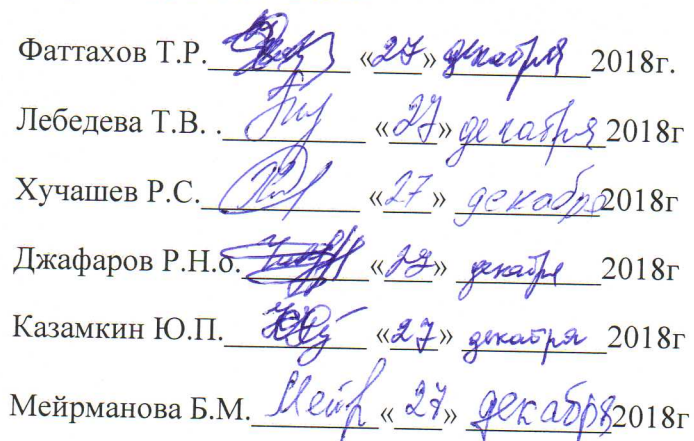 Фаттахов Т.Р. «27» декабря 2018г.
Лебедева Т.В. . «27» декабря 2018г
Хучашев Р.С. «27» декабря 2018г
Джафаров Р.Н.о. «27» декабря 2018г
Казамкин Ю.П. «27» декабря 2018г
Мейрманова Б.М. Мейр «27» декабря 2018г